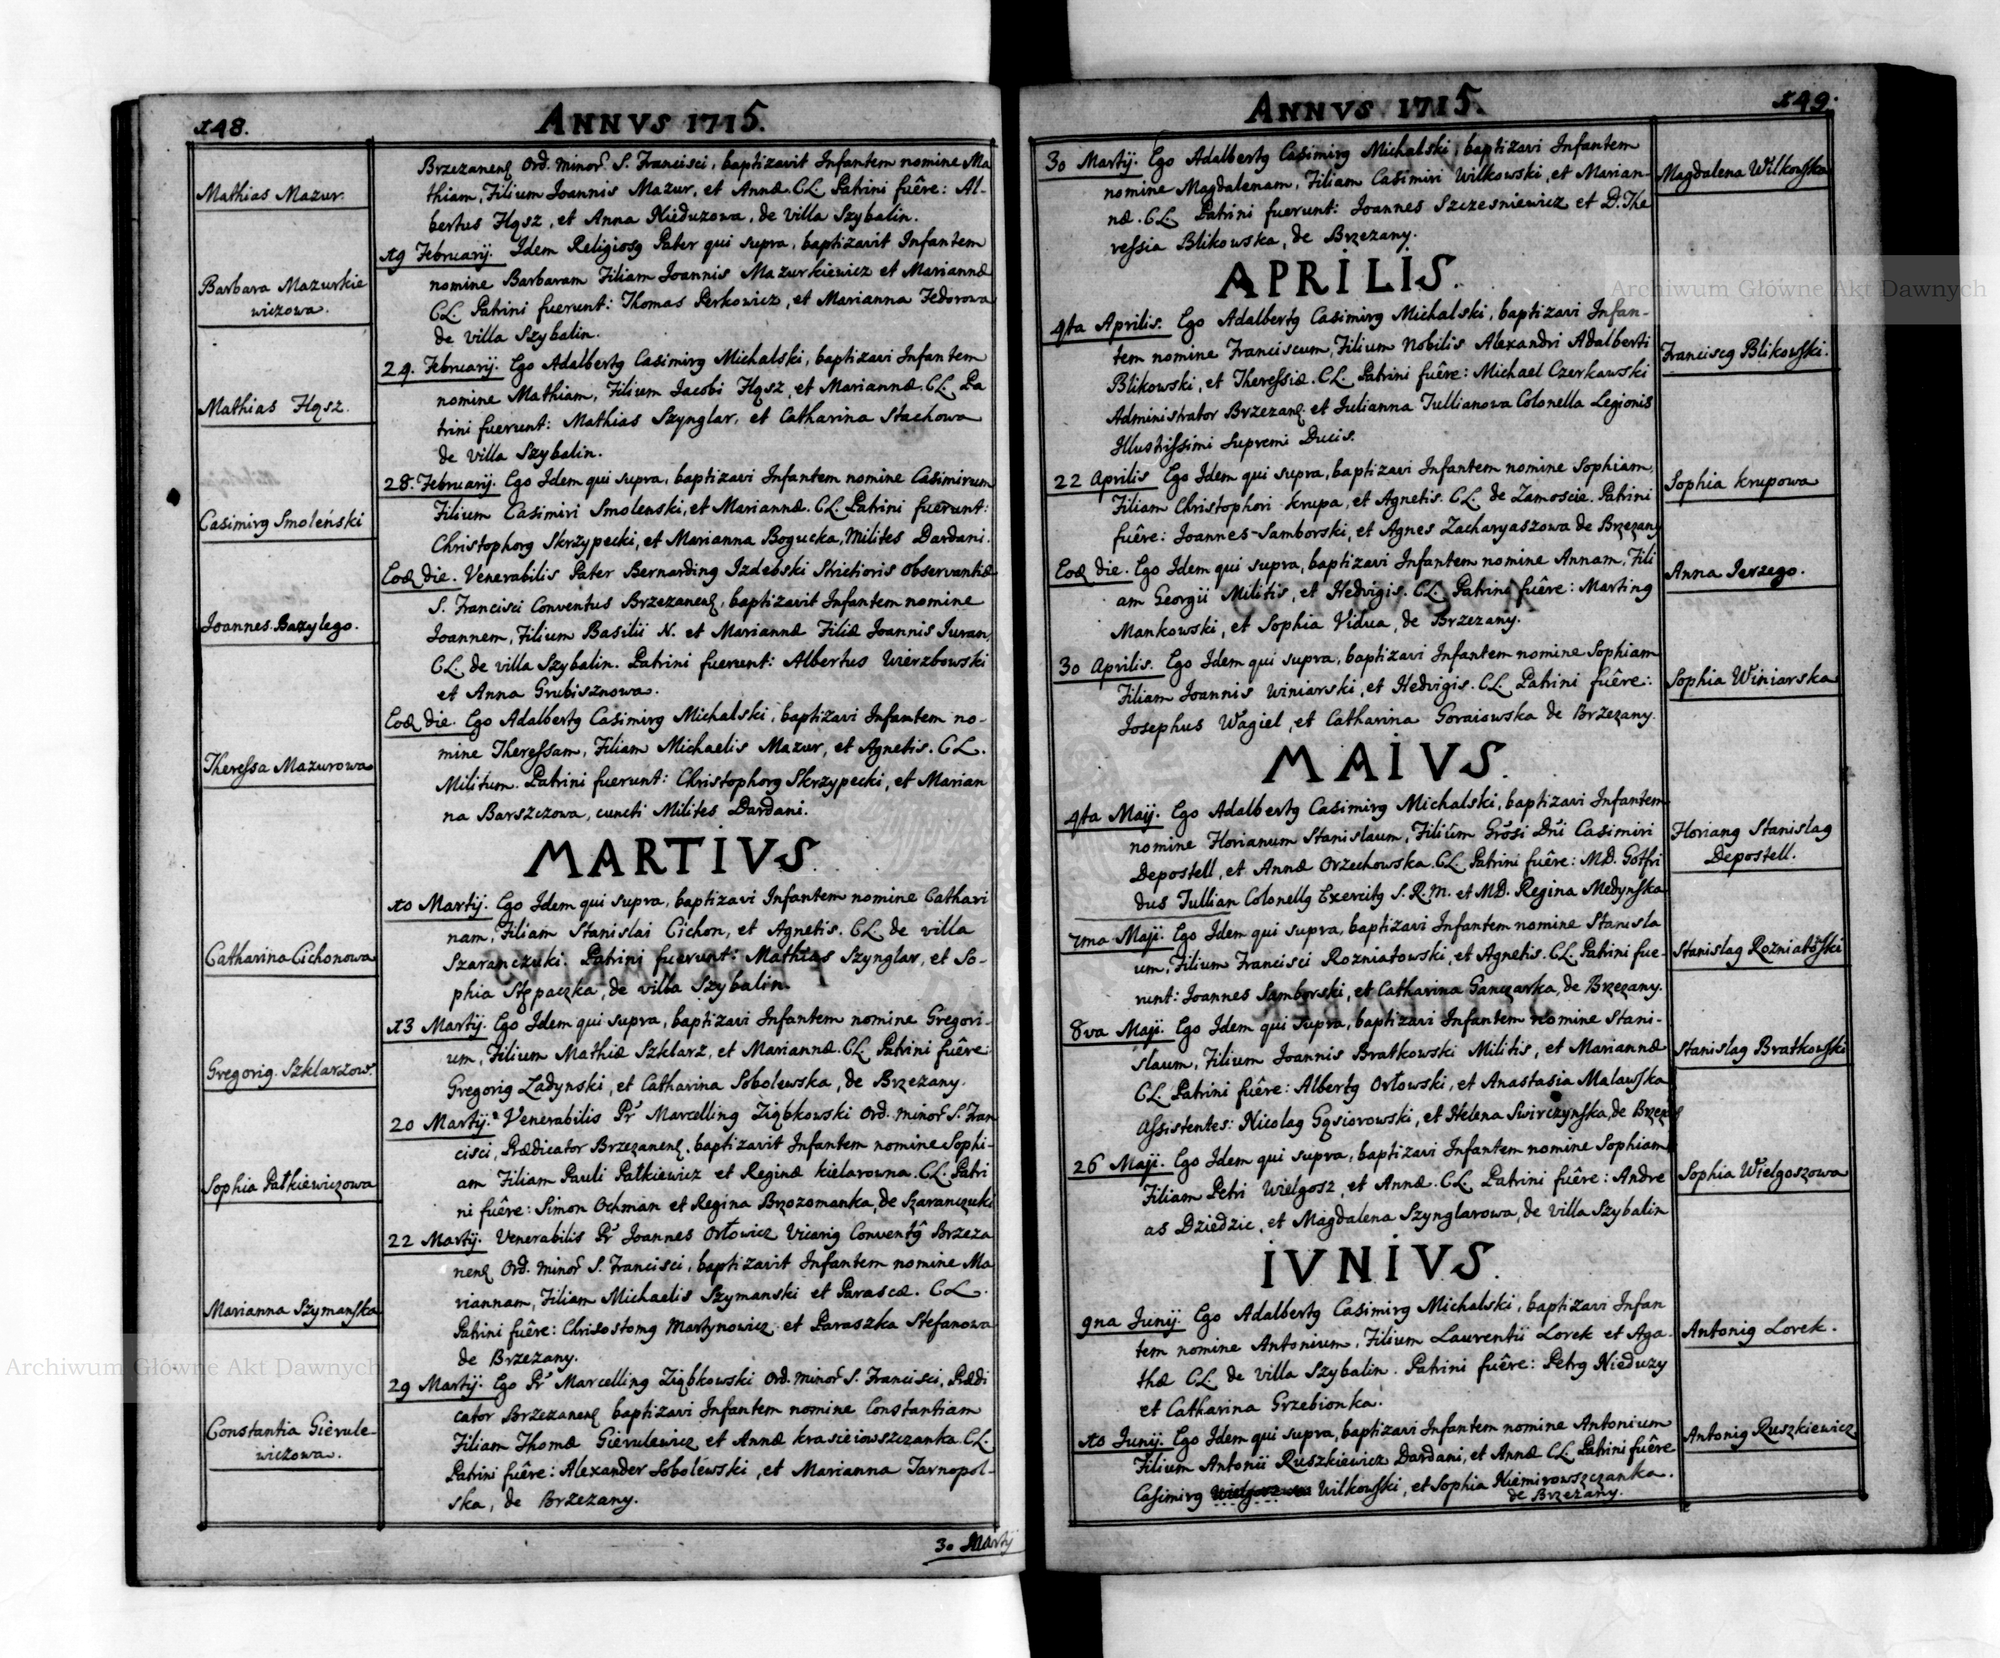 148.
ANNVS 1715.
Mathias Mazur.
Barbara Mazurkie
wiczowa.
Mathias Hąsz.
Casimirq Smoleński
Joannes Bazylego.
Theressa Mazurowa
Catharina Cichonowa
Gregoriq Szklarzow.
Sophia Patkiewiczowa
Marianna Szymanska
Constantia Gierule-
wiczowa.
Brzezanens Ord. Minor S. Francisci, baptizavit Infantem nomine Ma
thiam, Filium Joannis Mazur, et Annæ. CL. Patrini fuêre: Al-
bertus Hąsz, et Anna Nieduzowa, de villa Szybalin.
19 Februarij. Idem Religiosq Pater qui supra, baptizavit Infantem
nomine Barbaram Filiam Joannis Mazurkiewicz et Mariannæ
CL. Patrini fuerunt: Thomas Perkowicz, et Marianna Fedorowa
de villa Szybalin.
24. Februarij. Ego Adalbertq Casimirq Michalski, baptizavi Infantem
nomine Mathiam, Filium Jacobi Hąsz, et Mariannæ. CL. Pa
trini fuerunt: Mathias Szynglar, et Catharina Stachowa
de villa Szybalin.
28. Februarij. Ego Idem qui supra, baptizavi Infantem nomine Casimirum
Filium Casimiri Smolenski, et Mariannæ. CL. Patrini fuerunt:
Christophorq Skrzypecki, et Marianna Bogucka, Milites Dardani.
Eod die. Venerabilis Pater Bernardinq Izdebski Strictioris Observantiæ
S. Francisci Conventus Brzezanens, baptizavit Infantem nomine
Joannem, Filium Basilii N. et Mariannæ Filiæ Joannis Juran,
CL. de villa Szybalin. Patrini fuerunt: Albertus Wierzbowski
et Anna Grubisznowa.
Eod die. Ego Adalbertq Casimirq Michalski, baptizavi Infantem no-
mine Theressam, Filiam Michaelis Mazur, et Agnetis. CL.
Militum. Patrini fuerunt: Christophorq Skrzypecki, et Marian
na Barszczowa, cuncti Milites Dardani.
MARTIVS.
10 Martij. Ego Idem qui supra, baptizavi Infantem nomine Cathari
nam, Filiam Stanislai Cichon, et Agnetis. CL. de villa
Szaranczuki. Patrini fuerunt: Mathias Szynglar, et So-
phia Stępaczka, de villa Szybalin.
13 Martij. Ego Idem qui supra, baptizavi Infantem nomine Gregori-
um, Filium Mathiæ Szklarz, et Mariannæ. CL. Patrini fuêre:
Gregoriq Zadynski, et Catharina Sobolewska, de Brzezany.
20 Martij. Venerabilis Pr Marcellinq Ziąbkowski Ord. Minor S. Fran
cisci, Prædicator Brzezanens, baptizavit Infantem nomine Sophi-
am Filiam Pauli Patkiewicz et Reginæ Kielarowna. CL. Patri
ni fuêre: Simon Ochman et Regina Brzozomanka, de Szaranczuki
22 Martij. Venerabilis Pr Joannes Orłowicz Vicariq Conventq Brzeza
nens Ord. Minor S. Francisci, baptizavit Infantem nomine Ma
riannam, Filiam Michaelis Szymanski et Parascæ. CL.
Patrini fuêre: Chrisostomq Martynowicz et Paraszka Stefanowa
de Brzezany.
29 Martij. Ego Pr Marcellinq Ziąbkowski Ord. Minor S. Francisci, Prædi
cator Brzezanens baptizavi Infantem nomine Constantiam
Filiam Thomæ Gierulewicz et Annæ Krasieiowszczanka CL.
Patrini fuêre: Alexander Sobolewski, et Marianna Tarnopol-
ska, de Brzezany.
30 Martij
ANNVS 1715.
149.
30 Martij. Ego Adalbertq Casimirq Michalski, baptizavi Infantem
nomine Magdalenam, Filiam Casimiri Wilkowski, et Marian-
næ. CL. Patrini fuerunt: Joannes Szczesniewicz et D. The
ressia Blikowska, de Brzezany.
APRILIS.
4ta Aprilis. Ego Adalbertq Casimirq Michalski, baptizavi Infan-
tem nomine Franciscum, Filium Nobilis Alexandri Adalberti
Blikowski, et Theressiæ. CL. Patrini fuêre: Michael Czerkawski
Administrator Brzezans. et Julianna Tullianowa Colonella Legionis
Illustrissimi Supremi Ducis.
22 Aprilis Ego Idem qui supra, baptizavi Infantem nomine Sophiam,
Filiam Christophori Krupa, et Agnetis. CL. de Zamoscia. Patrini
fuêre: Joannes Samborski, et Agnes Zacharyaszowa de Brzezany
Eod die. Ego Idem qui supra, baptizavi Infantem nomine Annam, Fili
am Georgii Militis, et Hedvigis. CL. Patrini fuêre: Martinq
Mankowski, et Sophia Vidua, de Brzezany.
30 Aprilis. Ego Idem qui supra, baptizavi Infantem nomine Sophiam
Filiam Joannis Winiarski, et Hedvigis. CL. Patrini fuêre:
Josephus Wagiel, et Catharina Goraiowska de Brzezany.
MAIVS.
4ta Maij. Ego Adalbertq Casimirq Michalski, baptizavi Infantem
nomine Florianum Stanislaum, Filium Grosi Dni Casimiri
Depostell, et Annæ Orzechowska. CL. Patrini fuêre: MD. Gotfri
dus Tullian Colonellq Exercitq S.R.M. et MD. Regina Medynska
7ma Maji. Ego Idem qui supra, baptizavi Infantem nomine Stanisla
um, Filium Francisci Rozniatowski, et Agnetis. CL. Patrini fue-
runt: Joannes Samborski, et Catharina Ganczarka, de Brzezany.
8va Maji. Ego Idem qui supra, baptizavi Infantem nomine Stani-
slaum, Filium Joannis Bratkowski Militis, et Mariannæ
CL. Patrini fuêre: Albertq Orłowski, et Anastasia Malawska
Assistentes: Nicolaq Gąsiorowski, et Helena Swirczynska, de Brzez
26 Maji. Ego Idem qui supra, baptizavi Infantem nomine Sophiam
Filiam Petri Wielgosz, et Annæ. CL. Patrini fuêre: Andre
as Dziedzic, et Magdalena Szynglarowa, de villa Szybalin
IVNIVS.
9na Junij. Ego Adalbertq Casimirq Michalski, baptizavi Infan
tem nomine Antonium, Filium Laurentii Lorek et Aga-
thæ CL. de villa Szybalin. Patrini fuêre: Petrq Nieduzy
et Catharina Grzebionka.
10 Junij. Ego Idem qui supra, baptizavi Infantem nomine Antonium
Filium Antonii Ruszkiewicz Dardani, et Annæ CL. Patrini fuêre
Casimirq Wilkowski, et Sophia Niemirowszczanka.
de Brzezany.
Magdalena Wilkowska
Franciscq Blikowski.
Sophia Krupowa
Anna Jerzego.
Sophia Winiarska
Florianq Stanislaq
Depostell.
Stanislaq Rozniatowski
Stanislaq Bratkowski
Sophia Wielgoszowa
Antoniq Lorek.
Antoniq Ruszkiewicz
Archiwum Główne Akt Dawnych
Archiwum Główne Akt Dawnych